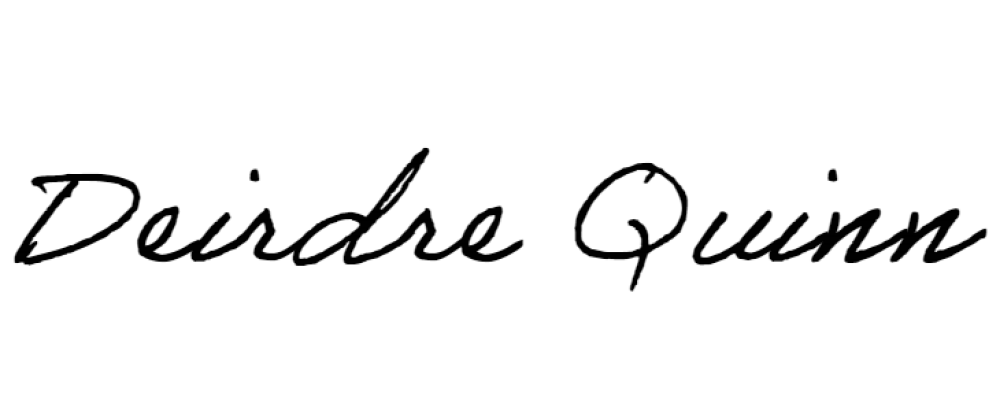 Deirdre Quinn